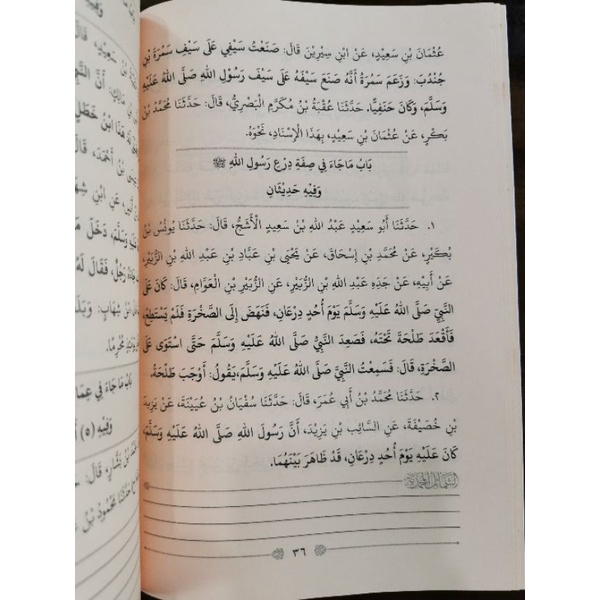 عُثْمَانَ بْنِ سَعِيدٍ، عَنِ ابْنِ سِيرِينَ قَالَ: صَنَعْتُ سَيْفِي عَلَى سَيْفِ سَمُرَةَ بْنِ
جُنْدُبٍ، وَزَعَمَ سَمُرَةُ أَنَّهُ صَنَعَ سَيْفَهُ عَلَى سَيْفِ رَسُولِ اللهِ صَلَّى اللهُ عَلَيْهِ
وَسَلَّمَ، وَكَانَ حَنَفِيًّا. حَدَّثَنَا عُقْبَةُ بْنُ مُكْرَمٍ الْبَصْرِيُّ، قَالَ: حَدَّثَنَا مُحَمَّدُ بْنُ
بَكْرٍ، عَنْ عُثْمَانَ بْنِ سَعِيدٍ، بِهَذَا الْإِسْنَادِ، نَحْوَهُ.
بَابُ مَا جَاءَ فِي صِفَةِ دِرْعِ رَسُولِ اللهِ ﷺ
وَفِيهِ حَدِيْثَانِ
١. حَدَّثَنَا أَبُو سَعِيدٍ عَبْدُ اللهِ بْنُ سَعِيدٍ الْأَشَجُّ، قَالَ: حَدَّثَنَا يُونُسُ بْنُ
بُكَيْرٍ، عَنْ مُحَمَّدِ بْنِ إِسْحَاقَ، عَنْ يَحْيَى بْنِ عَبَّادِ بْنِ عَبْدِ اللهِ بْنِ الزُّبَيْرِ،
عَنْ أَبِيهِ، عَنْ جَدِّهِ عَبْدِ اللهِ بْنِ الزُّبَيْرِ، عَنِ الزُّبَيْرِ بْنِ الْعَوَّامِ، قَالَ: كَانَ عَلَى
النَّبِيِّ صَلَّى اللهُ عَلَيْهِ وَسَلَّمَ يَوْمَ أُحُدٍ دِرْعَانِ، فَنَهَضَ إِلَى الصَّخْرَةِ فَلَمْ يَسْتَطِعْ،
فَأَقْعَدَ طَلْحَةَ تَحْتَهُ، فَصَعِدَ النَّبِيُّ صَلَّى اللهُ عَلَيْهِ وَسَلَّمَ حَتَّى اسْتَوَى عَلَى
الصَّخْرَةِ، قَالَ: فَسَمِعْتُ النَّبِيَّ صَلَّى اللهُ عَلَيْهِ وَسَلَّمَ، يَقُولُ: أَوْجَبَ طَلْحَةُ.
٢. حَدَّثَنَا مُحَمَّدُ بْنُ أَبِي عُمَرَ، قَالَ: حَدَّثَنَا سُفْيَانُ بْنُ عُيَيْنَةَ، عَنْ يَزِيدَ
بْنِ خُصَيْفَةَ، عَنِ السَّائِبِ بْنِ يَزِيدَ، أَنَّ رَسُولَ اللهِ صَلَّى اللهُ عَلَيْهِ وَسَلَّمَ،
كَانَ عَلَيْهِ يَوْمَ أُحُدٍ دِرْعَانِ، قَدْ ظَاهَرَ بَيْنَهُمَا.
٣٦